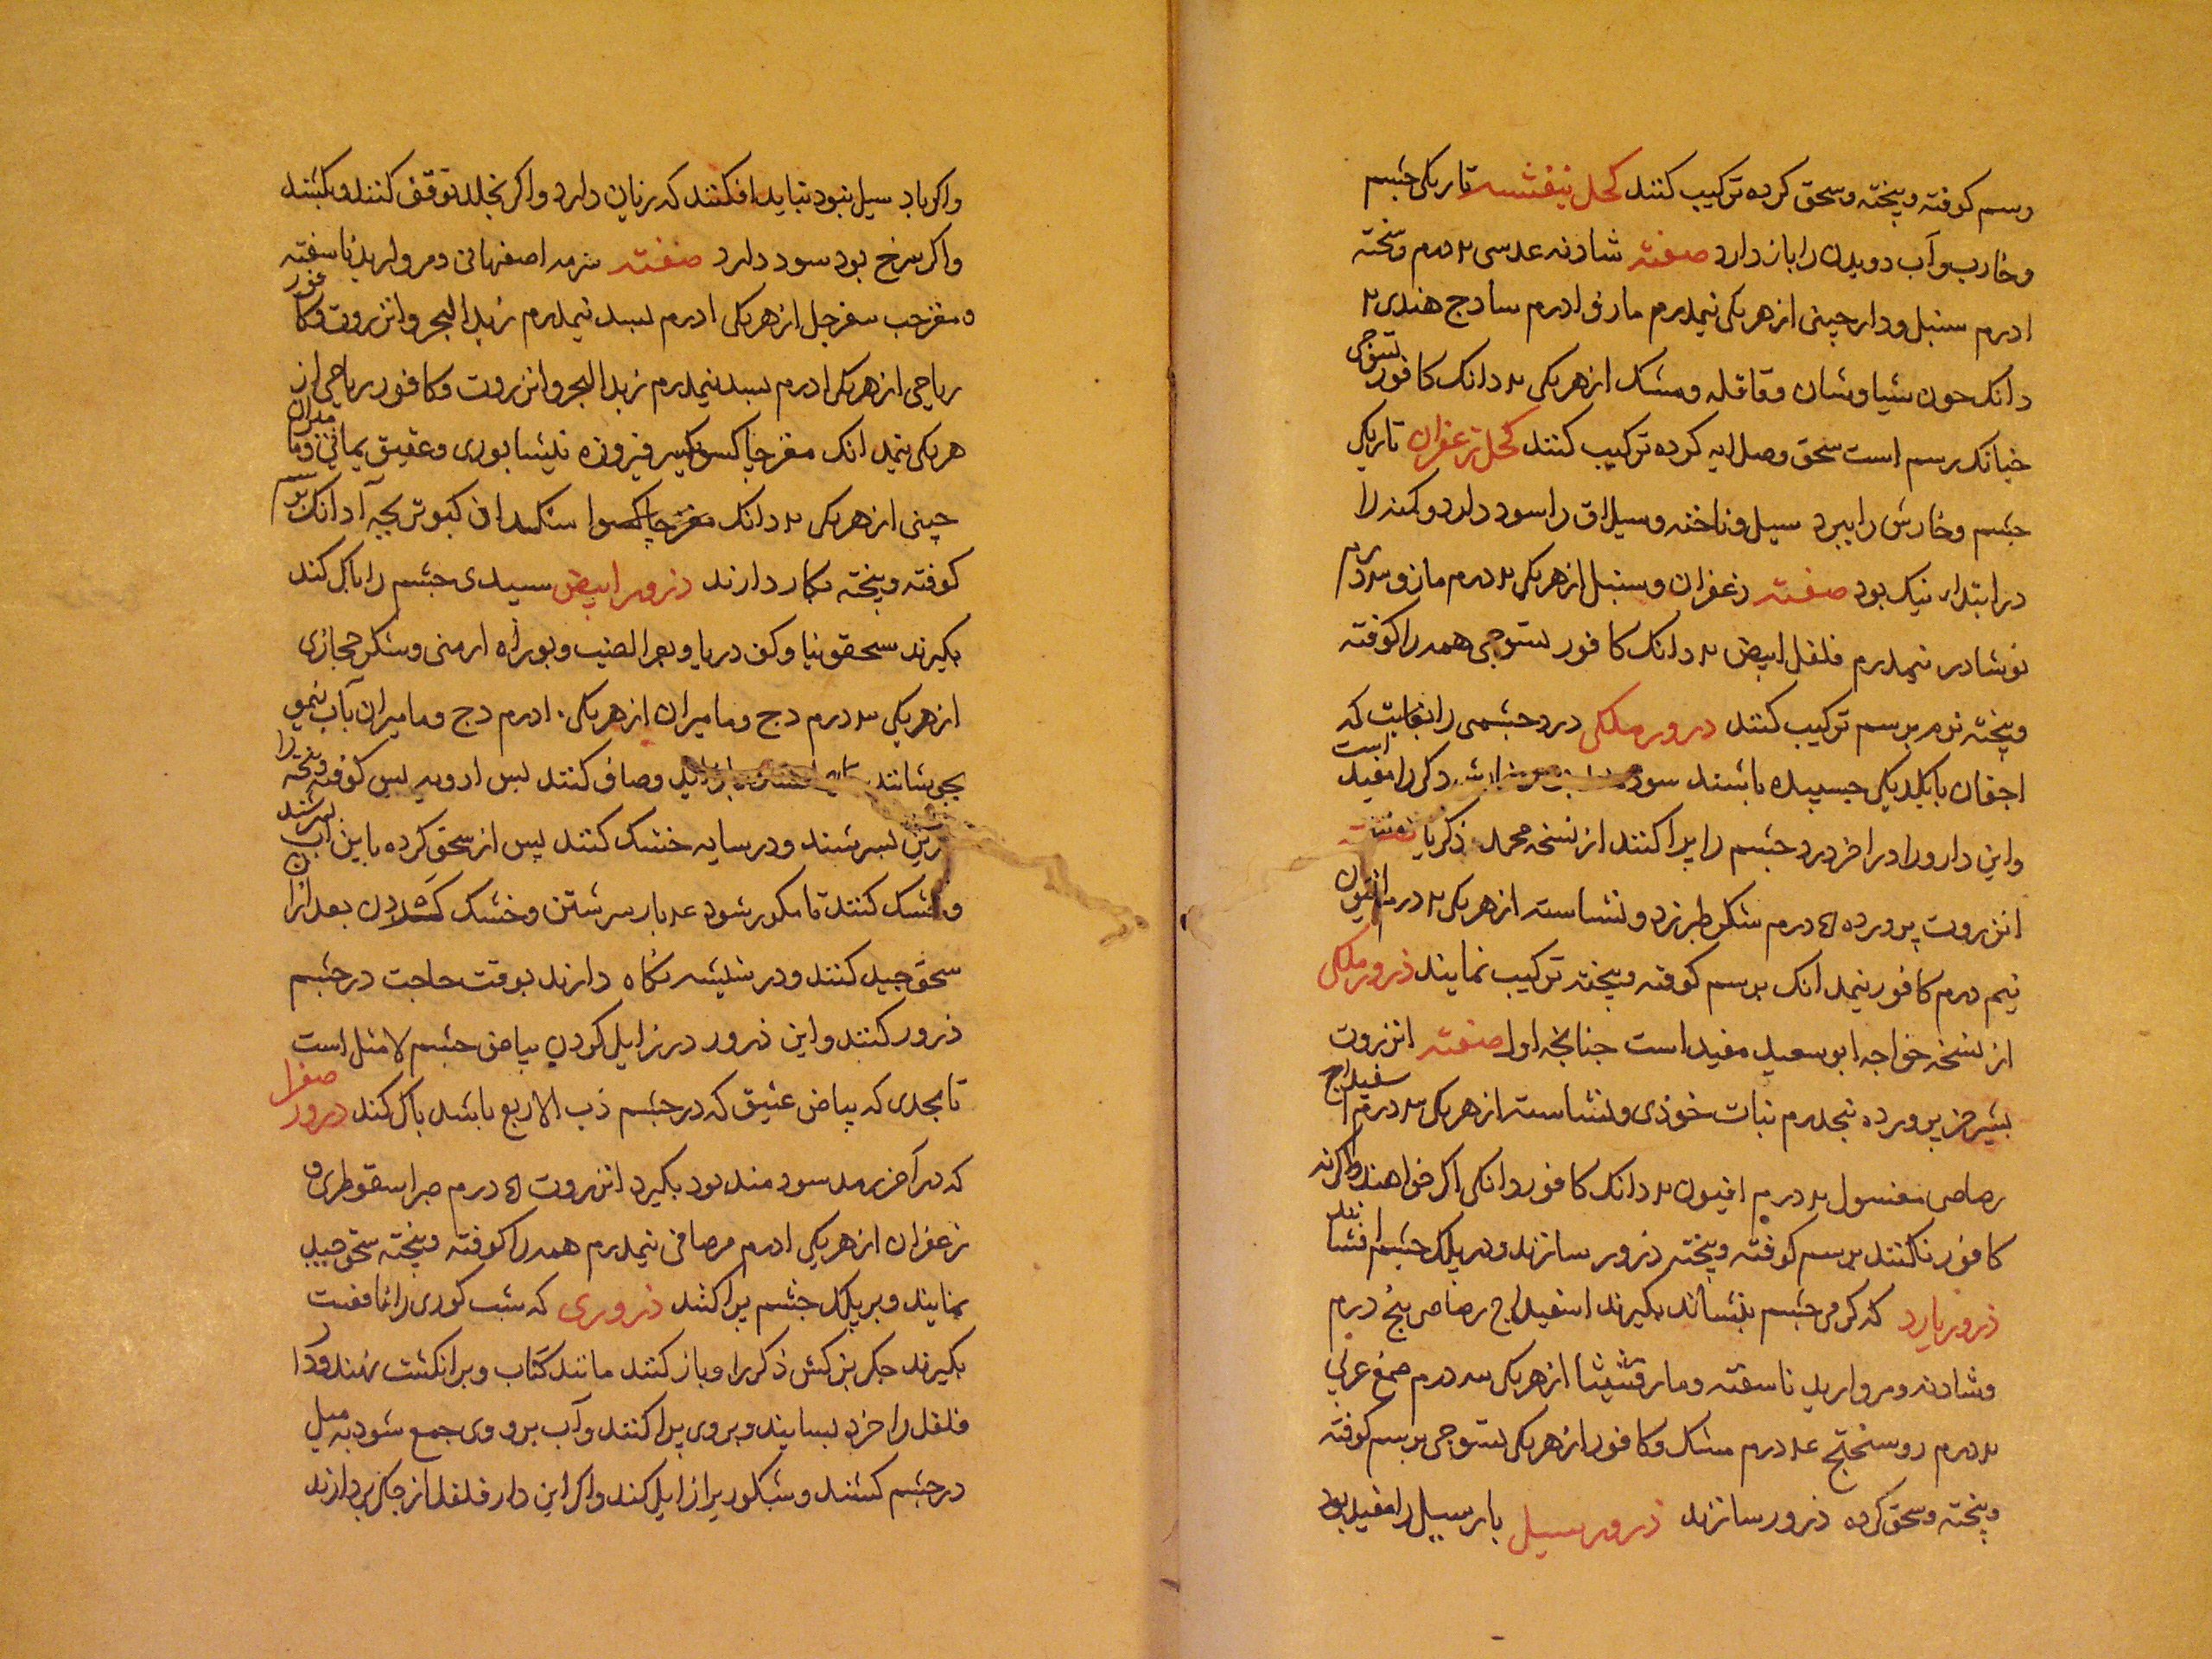 رسم کوفته و پخته و سحق کرده ترکیب کنند کحل بنفشه تاریکی چشم
و خارب و آب دویدن را باز دارد صفته شادنه عدسی ۲ درم و پخته
ادرم سنبل و دارچینی از هر یکی نیمدرم مازو ادرم سادج هندی ۲
دانک حون سیاوشان و قاقله و مشک از هر یکی ۲ دانک کافور تسوجی
چنانک رسم است سحق و صلایه کرده ترکیب کنند کحل زعفران تاریکی
چشم و خارش را ببرد سیل و ناخنه و سیلاق را سود دارد و کمنه را
در ابتداء نیک بود صفته زعفران و سنبل از هر یکی ۲ درم مازو ۳ درم
نوشادر نیمدرم فلفل ابیض ۲ دانک کافور تسوجی همه را کوفته
و پخته نرم برسم ترکیب کنند درور ملکی درد چشمی را بغایت که
اجفان با یکدیکر چسپیده باشند سود دکر را مفید است
و این دارو را در اخر درد چشم را پراکنند از نسخه محمد ذکریا صفته
انزروت پرورده ۵ درم شکر طبرزد و نشاسته از هر یکی ۲ درم افیون
نیم درم کافور نیمدانک برسم کوفته و پخته ترکیب نمایند ذرور ملکی
از نسخه خواجه ابو سعید مفید است چنانچه اول صفته انزروت
بشیر خر پرورده پنجدرم نبات خوذی و نشاسته از هر یکی ۳ درم سفیداج
رصاص مغسول ۲ درم افیون ۲ دانک کافور دانکی اکر خواهند و اکر نه
کافور نکنند برسم کوفته و پخته ذرور سازند و در پلک چشم افشانند
ذرور بارد که کرمی چشم بنشاند بکیرند اسفیداج رصاص پنج درم
و شادنه و مروارید ناسفته و مارقشیشا از هر یکی سه درم صمغ عربی
۲ درم روسختج عدد درم مشک و کافور از هر یکی تسوجی برسم کوفته
و پخته و سحق کرده ذرور سازند ذرور سیل باد سیل را مفید بود
و اکر باد سیل نبود نباید افکنند که زیان دارد و اکر بخلد توقف کنند و بکشند
و اکر سرخ بود سود دارد صفته سرمه اصفهانی و مروارید ناسفته
و مغز حب سفرجل از هر یکی ادرم سبد نیمدرم زبد البحر و انزروت و کافور
ریاحی از هر یکی ادرم سبد نیمدرم زبد البحر و انزروت و کافور ریاحی از
هر یکی نیمدانک مغز چاکسو یکسر فیروزه نیشابوری و عقیق یمانی و مامیران
چینی از هر یکی ۲ دانک مغز چاکسو ا سنکدان کبوتر بچه آ دانک برسم
کوفته و پخته بکار دارند ذرور ابیض سپیدی چشم را پاک کند
بکیرند سحقونیا و کف دریا و بعر الضب و بوراه ارمنی و شکر حجازی
از هر یکی ۳ درم دج و مامیران از هر یکی ۱۰ درم دج و مامیران آباب نیمو
بجوشانند وصاف کنند پس ادویه پس کوفته و پخته را
بسرشند و در سایه خشک کنند پس از سحق کرده باین آب بسرشند
و خشک کنند تا مکرر شود عدد بار سرشتن و خشک کردن بعد از ان
سحق جید کنند و در شیشه نکاه دارند بوقت حاجت در چشم
ذرور کنند و این ذرور در زایل کردن بیاض چشم لا مثل است
تا بحدی که بیاض عتیق که در چشم ذب الاربع باشد پاک کند درور صفرا
که در آخر رمد سودمند بود بکیرد انزروت ۵ درم صبر اسقوطری و
زعفران از هر یکی ادرم مر صافی نیمدرم همه را کوفته و پخته سحق جید
نمایند و بر پلک چشم پراکنند ذروری که شب کوری را نافعست
بکیرند جکر بز کش ذکر را و باز کنند مانند کتاب و بر انکشت نهند و دا
فلفل را خرد بسایند و بروی پراکنند و آب بروی جمع شود به میل
در چشم کشند و شبکوریرا زایل کند و اکر این دار فلفل از جکر بردارند